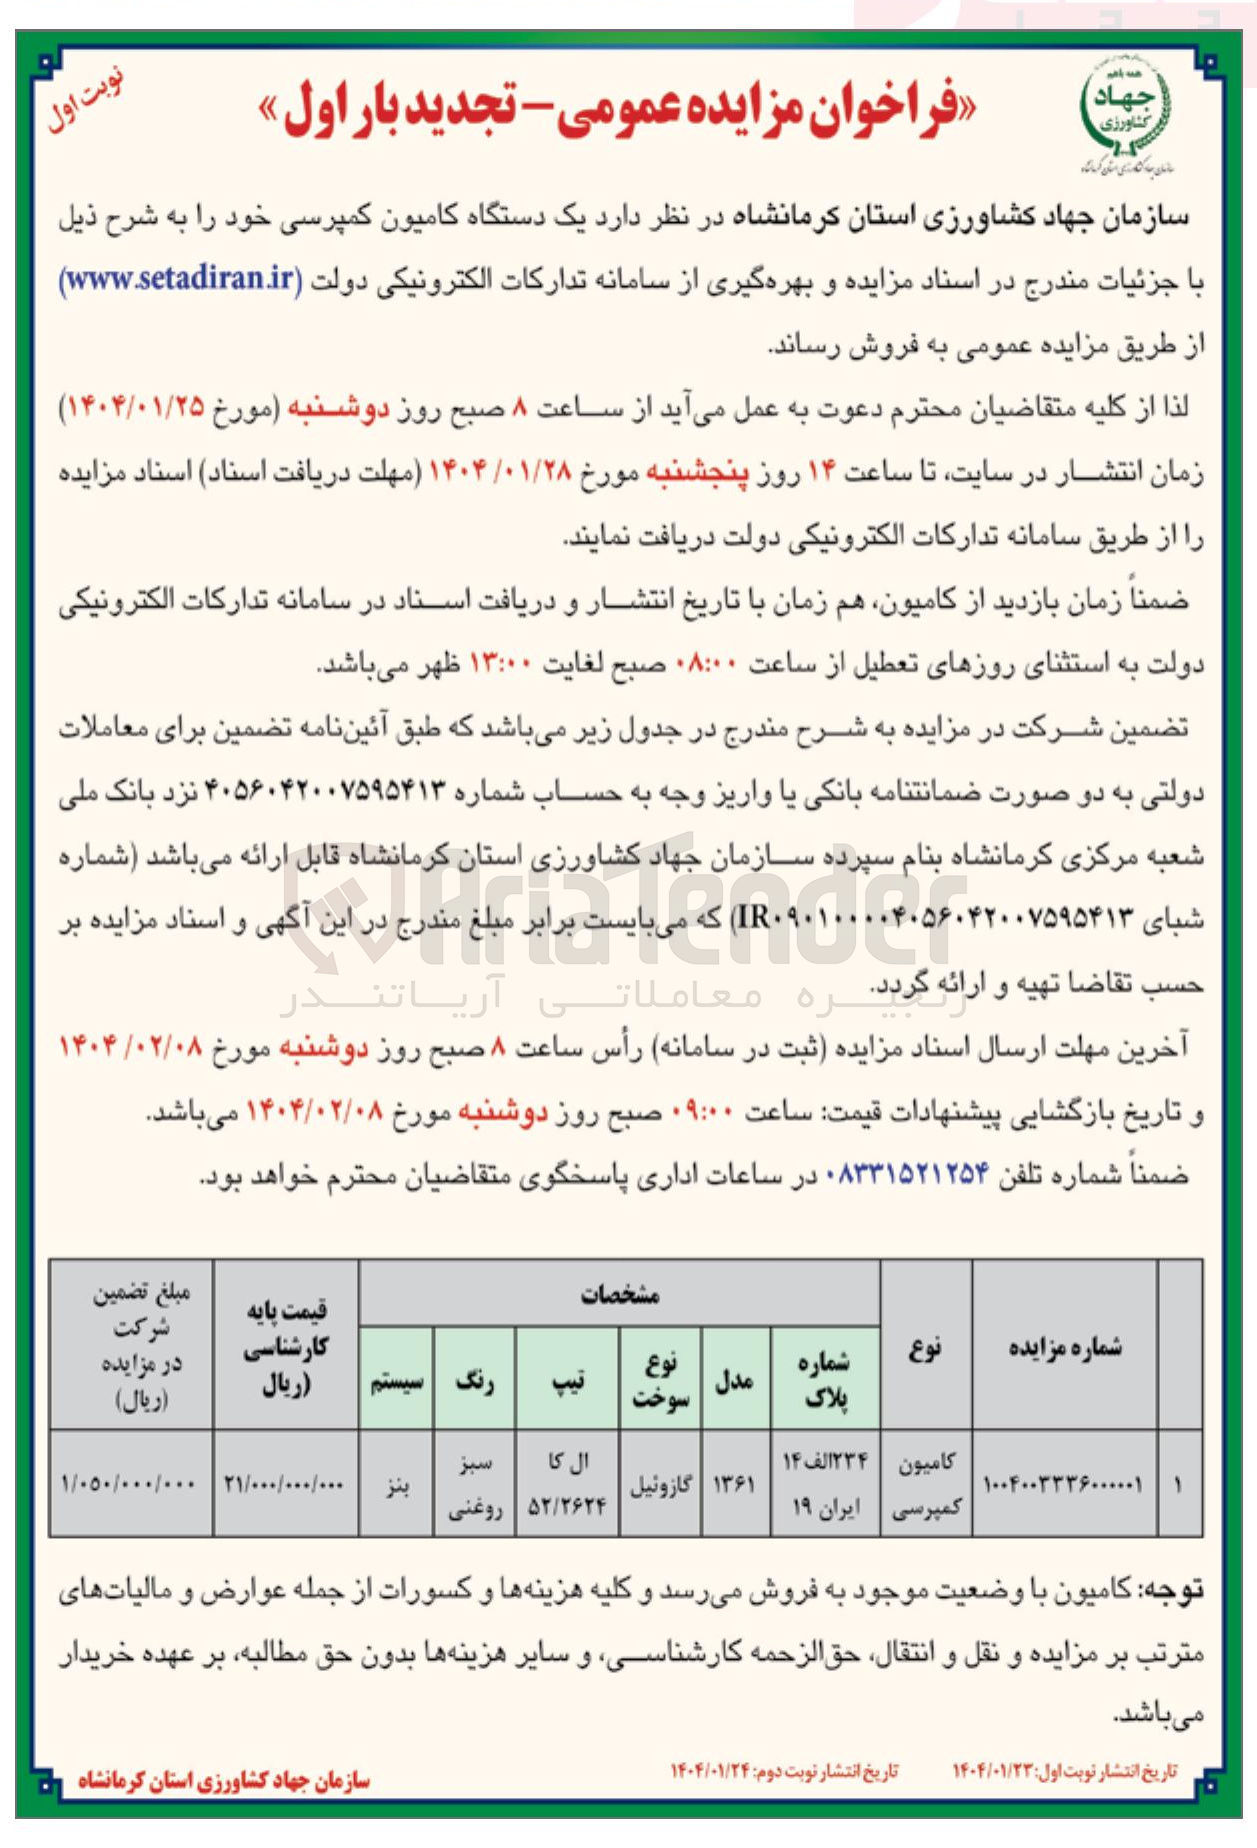 همه باهم
جهاد
کشاورزی
سازمان جهاد کشاورزی استان کرمانشاه
نوبت اول
«فراخوان مزایده عمومی – تجدید بار اول»
سازمان جهاد کشاورزی استان کرمانشاه در نظر دارد یک دستگاه کامیون کمپرسی خود را به شرح ذیل
با جزئیات مندرج در اسناد مزایده و بهره‌گیری از سامانه تدارکات الکترونیکی دولت (www.setadiran.ir)
از طریق مزایده عمومی به فروش رساند.
لذا از کلیه متقاضیان محترم دعوت به عمل می‌آید از ساعت ۸ صبح روز دوشنبه (مورخ ۱۴۰۴/۰۱/۲۵)
زمان انتشار در سایت، تا ساعت ۱۴ روز پنجشنبه مورخ ۱۴۰۴/۰۱/۲۸ (مهلت دریافت اسناد) اسناد مزایده
را از طریق سامانه تدارکات الکترونیکی دولت دریافت نمایند.
ضمناً زمان بازدید از کامیون، هم زمان با تاریخ انتشار و دریافت اسناد در سامانه تدارکات الکترونیکی
دولت به استثنای روزهای تعطیل از ساعت ۰۸:۰۰ صبح لغایت ۱۳:۰۰ ظهر می‌باشد.
تضمین شرکت در مزایده به شرح مندرج در جدول زیر می‌باشد که طبق آئین‌نامه تضمین برای معاملات
دولتی به دو صورت ضمانتنامه بانکی یا واریز وجه به حساب شماره ۴۰۵۶۰۴۲۰۰۷۵۹۵۴۱۳ نزد بانک ملی
شعبه مرکزی کرمانشاه بنام سپرده سازمان جهاد کشاورزی استان کرمانشاه قابل ارائه می‌باشد (شماره
شبای IR۰۹۰۱۰۰۰۰۴۰۵۶۰۴۲۰۰۷۵۹۵۴۱۳) که می‌بایست برابر مبلغ مندرج در این آگهی و اسناد مزایده بر
حسب تقاضا تهیه و ارائه گردد.
AriaTender
زنجیره معاملاتی آریاتندر
آخرین مهلت ارسال اسناد مزایده (ثبت در سامانه) رأس ساعت ۸ صبح روز دوشنبه مورخ ۱۴۰۴/۰۲/۰۸
و تاریخ بازگشایی پیشنهادات قیمت: ساعت ۰۹:۰۰ صبح روز دوشنبه مورخ ۱۴۰۴/۰۲/۰۸ می‌باشد.
ضمناً شماره تلفن ۰۸۳۳۱۵۲۱۲۵۴ در ساعات اداری پاسخگوی متقاضیان محترم خواهد بود.
شماره مزایده نوع مشخصات قیمت پایه کارشناسی (ریال مبلغ تضمین شرکت در مزایده (ریال)
شماره پلاک مدل نوع سوخت تیپ رنگ سیستم
۱ ۱۰۰۴۰۰۳۳۳۶۰۰۰۰۰۱ کامیون کمپرسی ۲۳۴الف۱۴ ایران ۱۹ ۱۳۶۱ گازوئیل ال کا ۵۲/۲۶۲۴ سبز روغنی بنز ۲۱/۰۰۰/۰۰۰/۰۰۰ ۱/۰۵۰/۰۰۰/۰۰۰
توجه: کامیون با وضعیت موجود به فروش می‌رسد و کلیه هزینه‌ها و کسورات از جمله عوارض و مالیات‌های
مترتب بر مزایده و نقل و انتقال، حق‌الزحمه کارشناسی، و سایر هزینه‌ها بدون حق مطالبه، بر عهده خریدار
می‌باشد.
تاریخ انتشار نوبت اول: ۱۴۰۴/۰۱/۲۳ تاریخ انتشار نوبت دوم: ۱۴۰۴/۰۱/۲۴ سازمان جهاد کشاورزی استان کرمانشاه